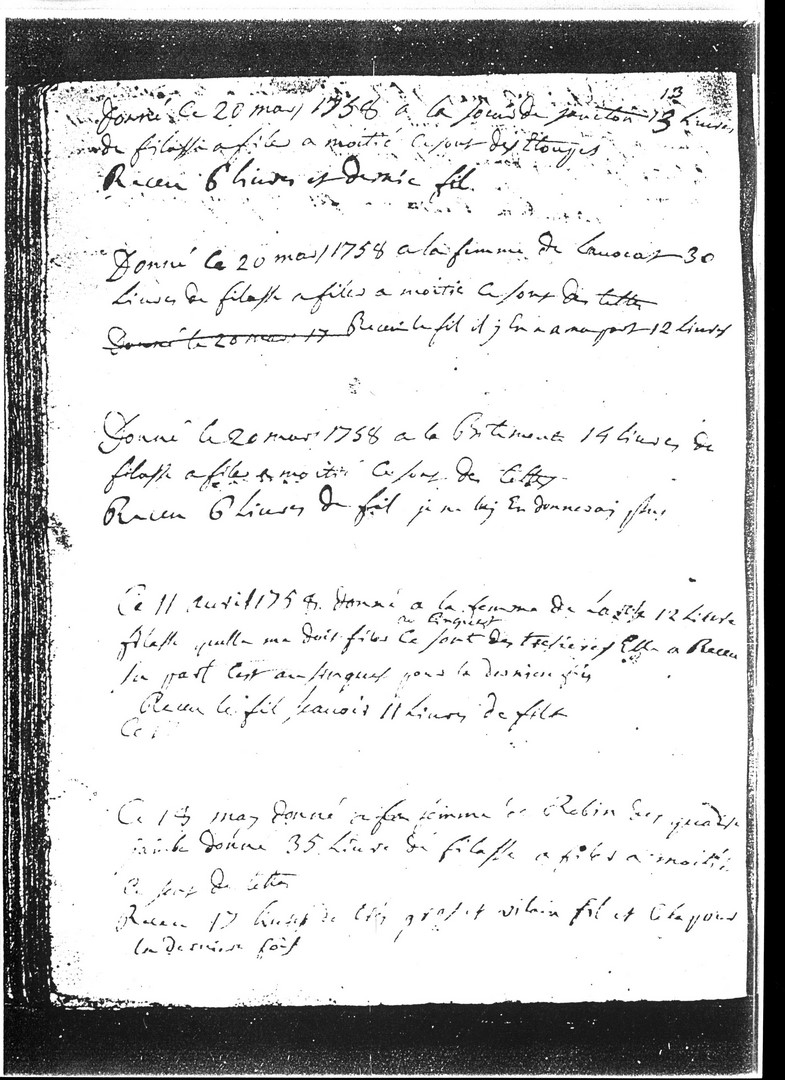 13
Donné Ce 20 mars 1758 a la soeur de janeton 13 Liures
de filasse a filer a moitié Ce sont des Etouges
Receu 6 liures et demie fil
Donné Ce 20 mars 1758 a la femme de Lauocat 30
Liures de filasse a filer a moitié Ce sont des tettes
Donné le 20 mars 17 Receu le fil il y En a a ma part 12 Liures
Donné le 20 mars 1758 a la 14 liures de
filasse a filer a moitié Ce sont des tettes
Receu 6 Liures de fil je ne luy En donnerai plus
Ce 11 auril 1758 donné a la femme de 12 Liures
au Cinquest
filasse quelle me doit filer Ce sont des Elle a Receu
sa part Cest au pour la derniere fois
Receu le fil scauoir 11 Liures de fils
Ce 1
Ce 18 may donné a la femme de Robin
jambe donné 35 Liures de filasse a filer a moitié
Ce sont de tettes
Receu 17 liures de tres gros et vilain fil et C'est pour
la derniere fois